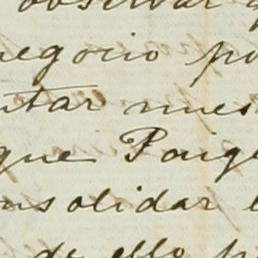 observar q
negocio po
ntar nues
que Paig
onsolidar l
de ello p